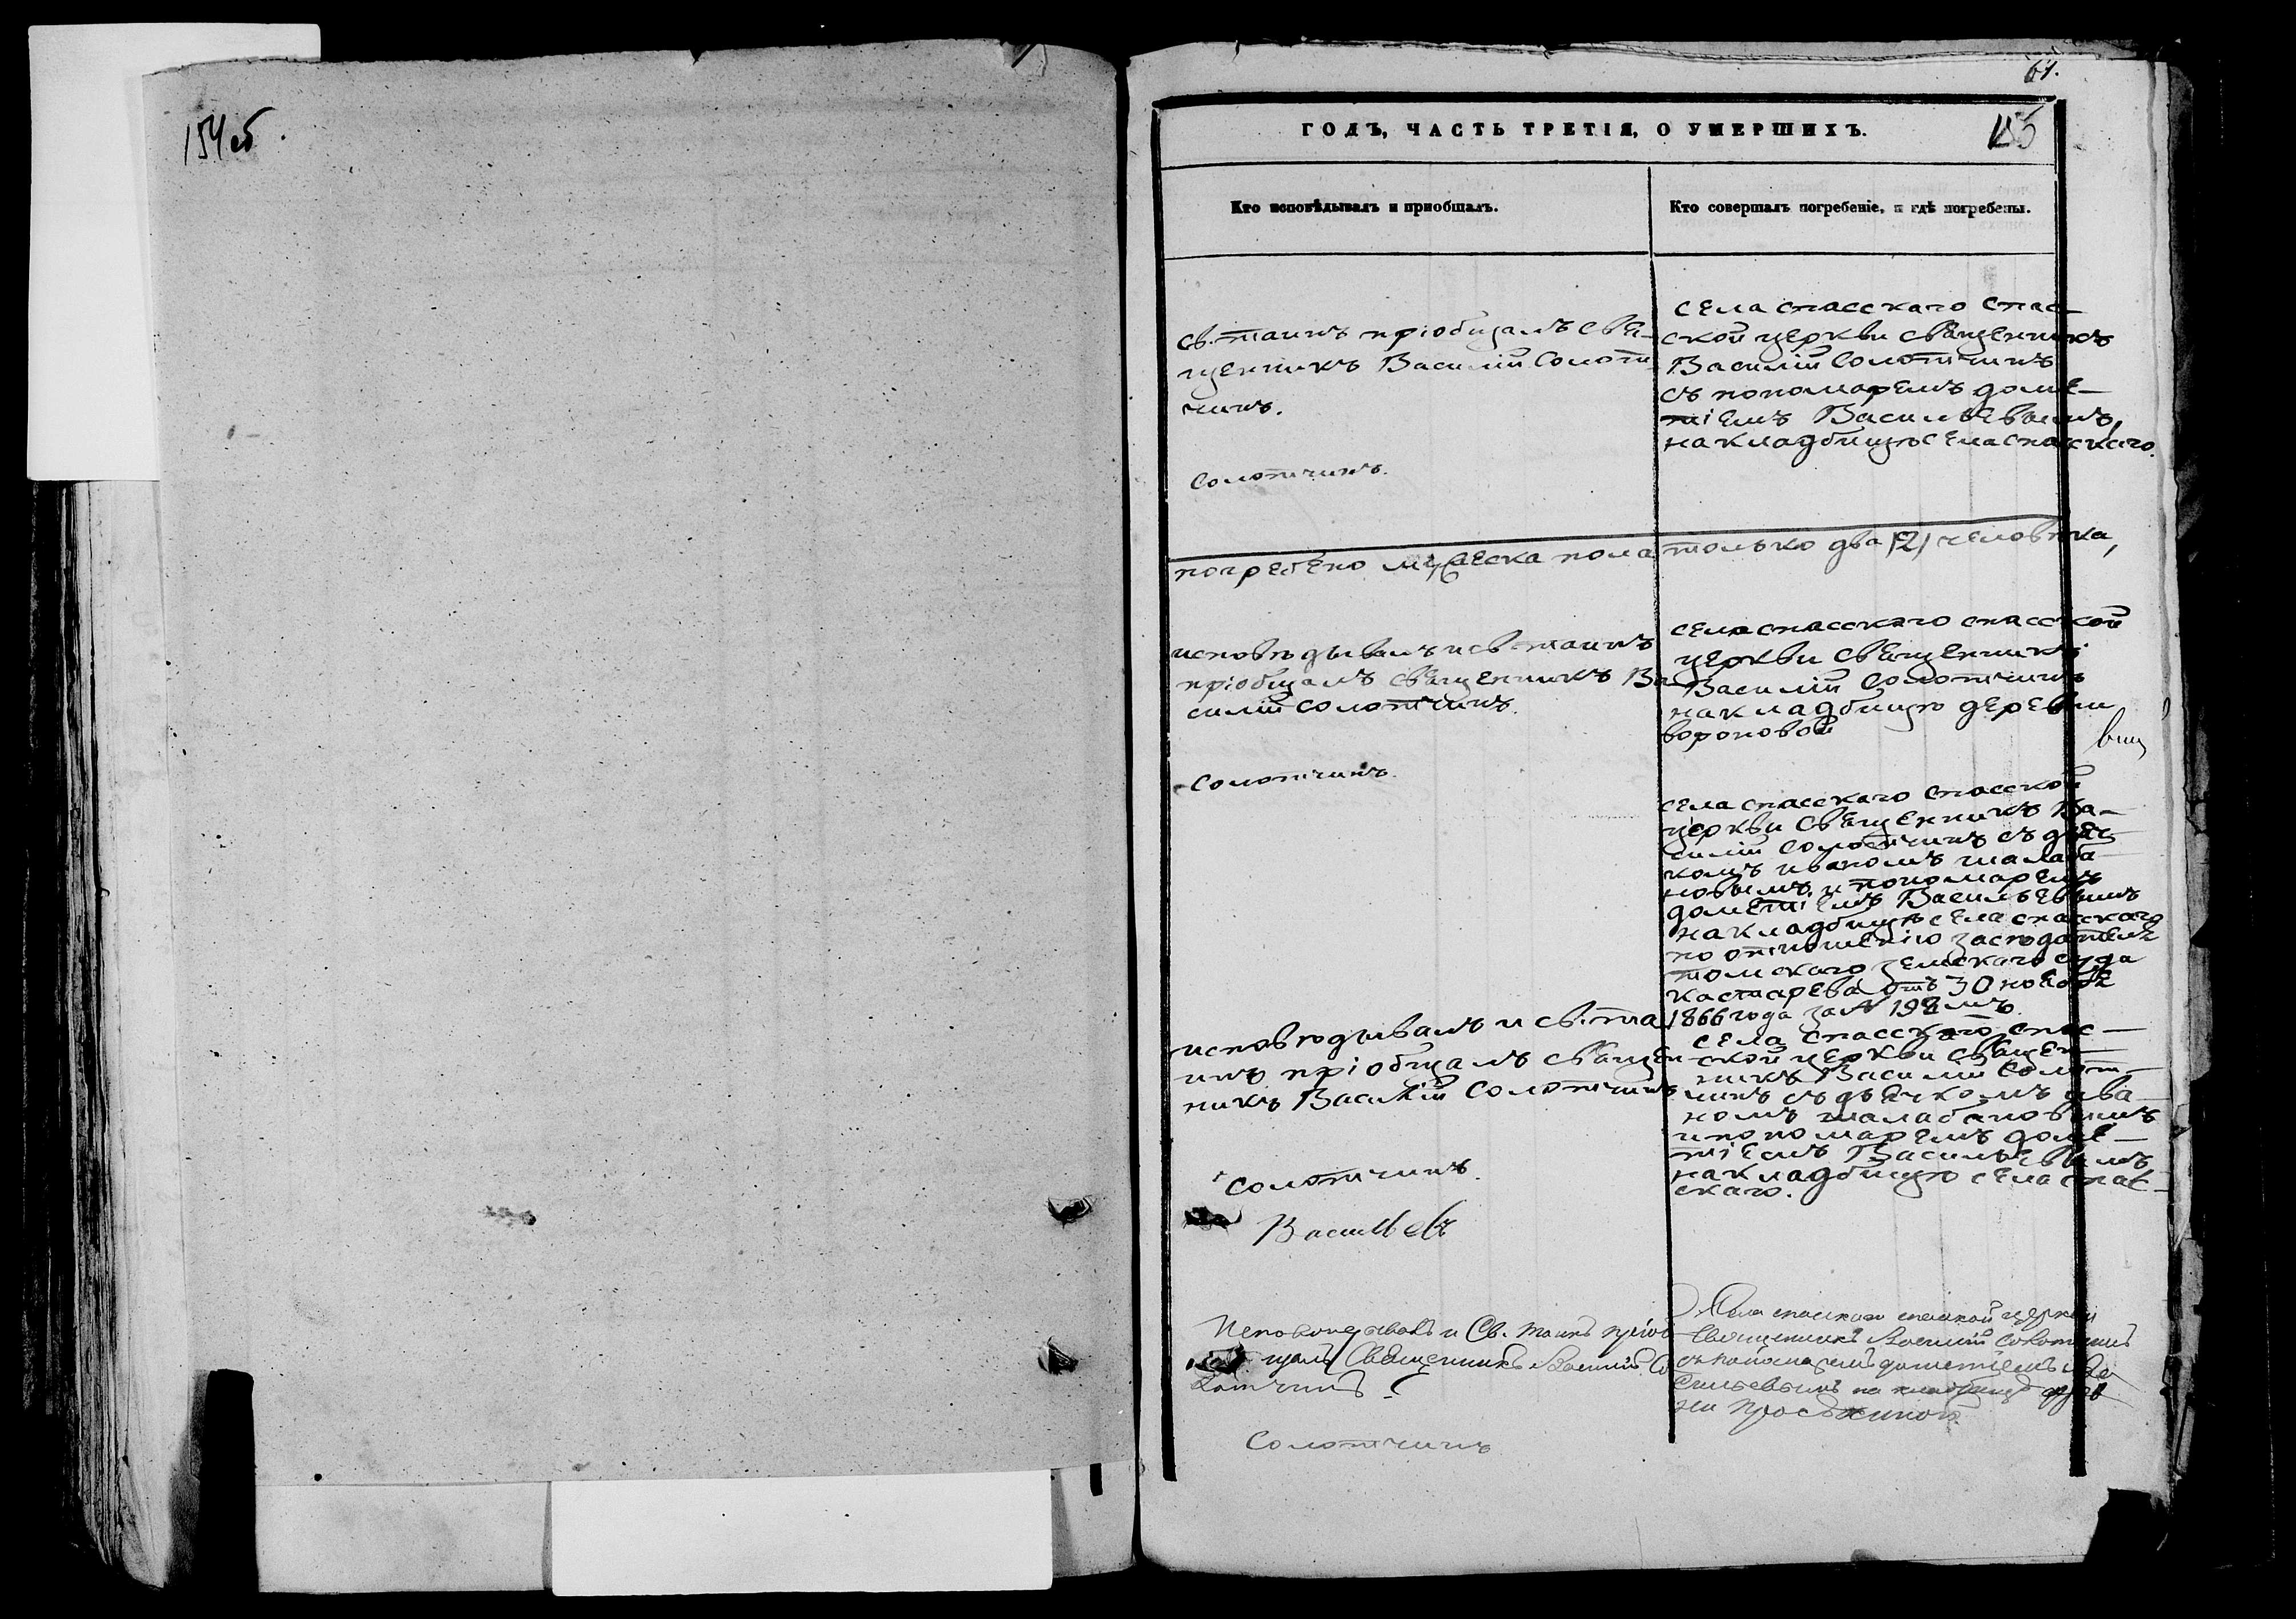 154 об.
61.
ГОДЪ, ЧАСТЬ ТРЕТІЯ, О УМЕРШИХЪ.
155
Кто исповѣдывалъ и пріобщалъ.
Кто совершалъ погребеніе, и гдѣ погребены.
св. таинъ пріобщалъ свя-
щенникъ Василій Солот-
чинъ.
Солотчинъ.
села спасскаго Спас-
ской церкви священникъ
Василій Солотчинъ
съ пономаремъ доме-
тіемъ Васильевымъ,
на кладбищѣ села спасскаго.
погребено мужеска пола только два /2/ человѣка,
исповѣдывалъ и св таинъ
пріобщалъ священникъ Ва-
силій Солотчинъ.
Солотчинъ.
села спасскаго спасской
церкви священникъ
Василій Солотчинъ
на кладбищѣ деревни
вороновой
села спасскаго спасской
церкви священникъ Ва-
силій Солотчинъ съ дьяч
комъ иваномъ шалаба
новымъ и пономаремъ
дометіемъ Васильевымъ
на кладбищѣ села спасскаго
по отношенію засѣдателя
томскаго земскаго суда
кастарева отъ 30 ноября
1866 года за № 198 мъ.
исповѣдывалъ и св. та
инъ пріобщалъ священ
никъ Василій Солотчинъ
Солотчинъ.
Васильевъ
села спасскаго спас-
ской церкви священ-
никъ Василій Солот-
чинъ съ дьячкомъ ива-
номъ шалабановымъ
и пономаремъ доме-
тіемъ Васильевымъ
на кладбищѣ села спас-
скаго.
Исповѣдывалъ и Св. таинъ пріоб
щалъ Священникъ Василій Со
лотчинъ
Солотчинъ
Села спасскаго спасской церкви
Священникъ Василій Солотчинъ
съ пономаремъ дометіемъ Ва
сильевымъ на кладбищѣ дерев
ни